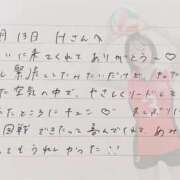 月 13日 Hさんへ
いに来てくれてありがとう〜♡
緊張していたみたいだけど、
空気の中で、やさしくリードして
たところにチュン♡
回戦できたって喜んでくれてみ
てもうれしかった!!